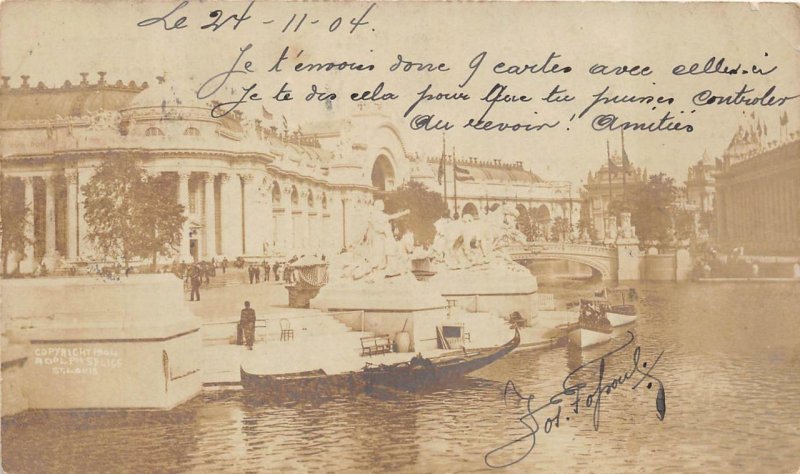 Le 24-11-04.
Je t'envois donc 9 cartes avec celle-ci
Je te dis cela pour que tu puisses controler
au revoir! Amitiés
COPYRIGHT 1904
ADOLPH SELIGE
ST. LOUIS